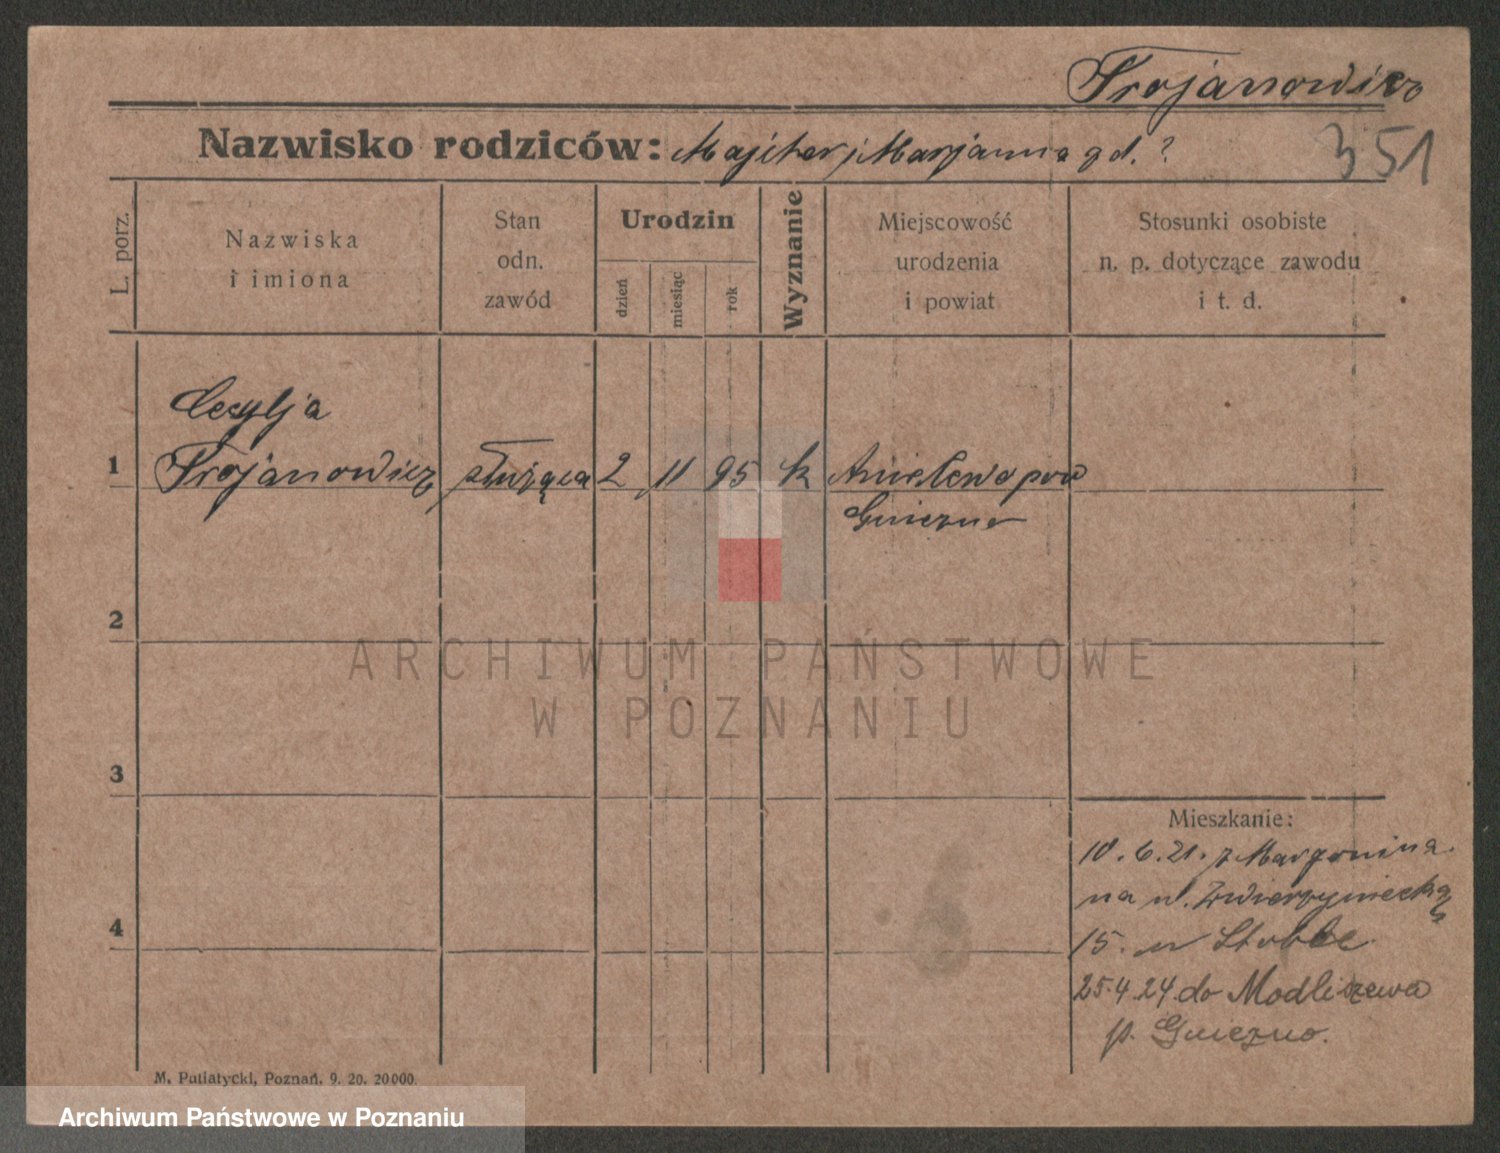 Trojanowicz
Nazwisko rodziców: Majcher i Marjanna gd. ?
351
L. porz.
Nazwiska
i imiona
Stan
odn.
zawód
Urodzin
dzień
miesiąc
rok
Wyznanie
Miejscowość
urodzenia
i powiat
Stosunki osobiste
n. p. dotyczące zawodu
i t. d.
Cecylja
1 Trojanowicz służąca 2 11 95 k Anielewo pow
Gniezno
2
ARCHIWUM PAŃSTWOWE
W POZNANIU
3
Mieszkanie:
10.6.21. z Margonina
na ul. Zwierzyniecką
4
15. u Stobbe
25.4.24. do Modliszewa
p. Gniezno.
M. Putiatycki, Poznań. 9. 20. 20000.
Archiwum Państwowe w Poznaniu